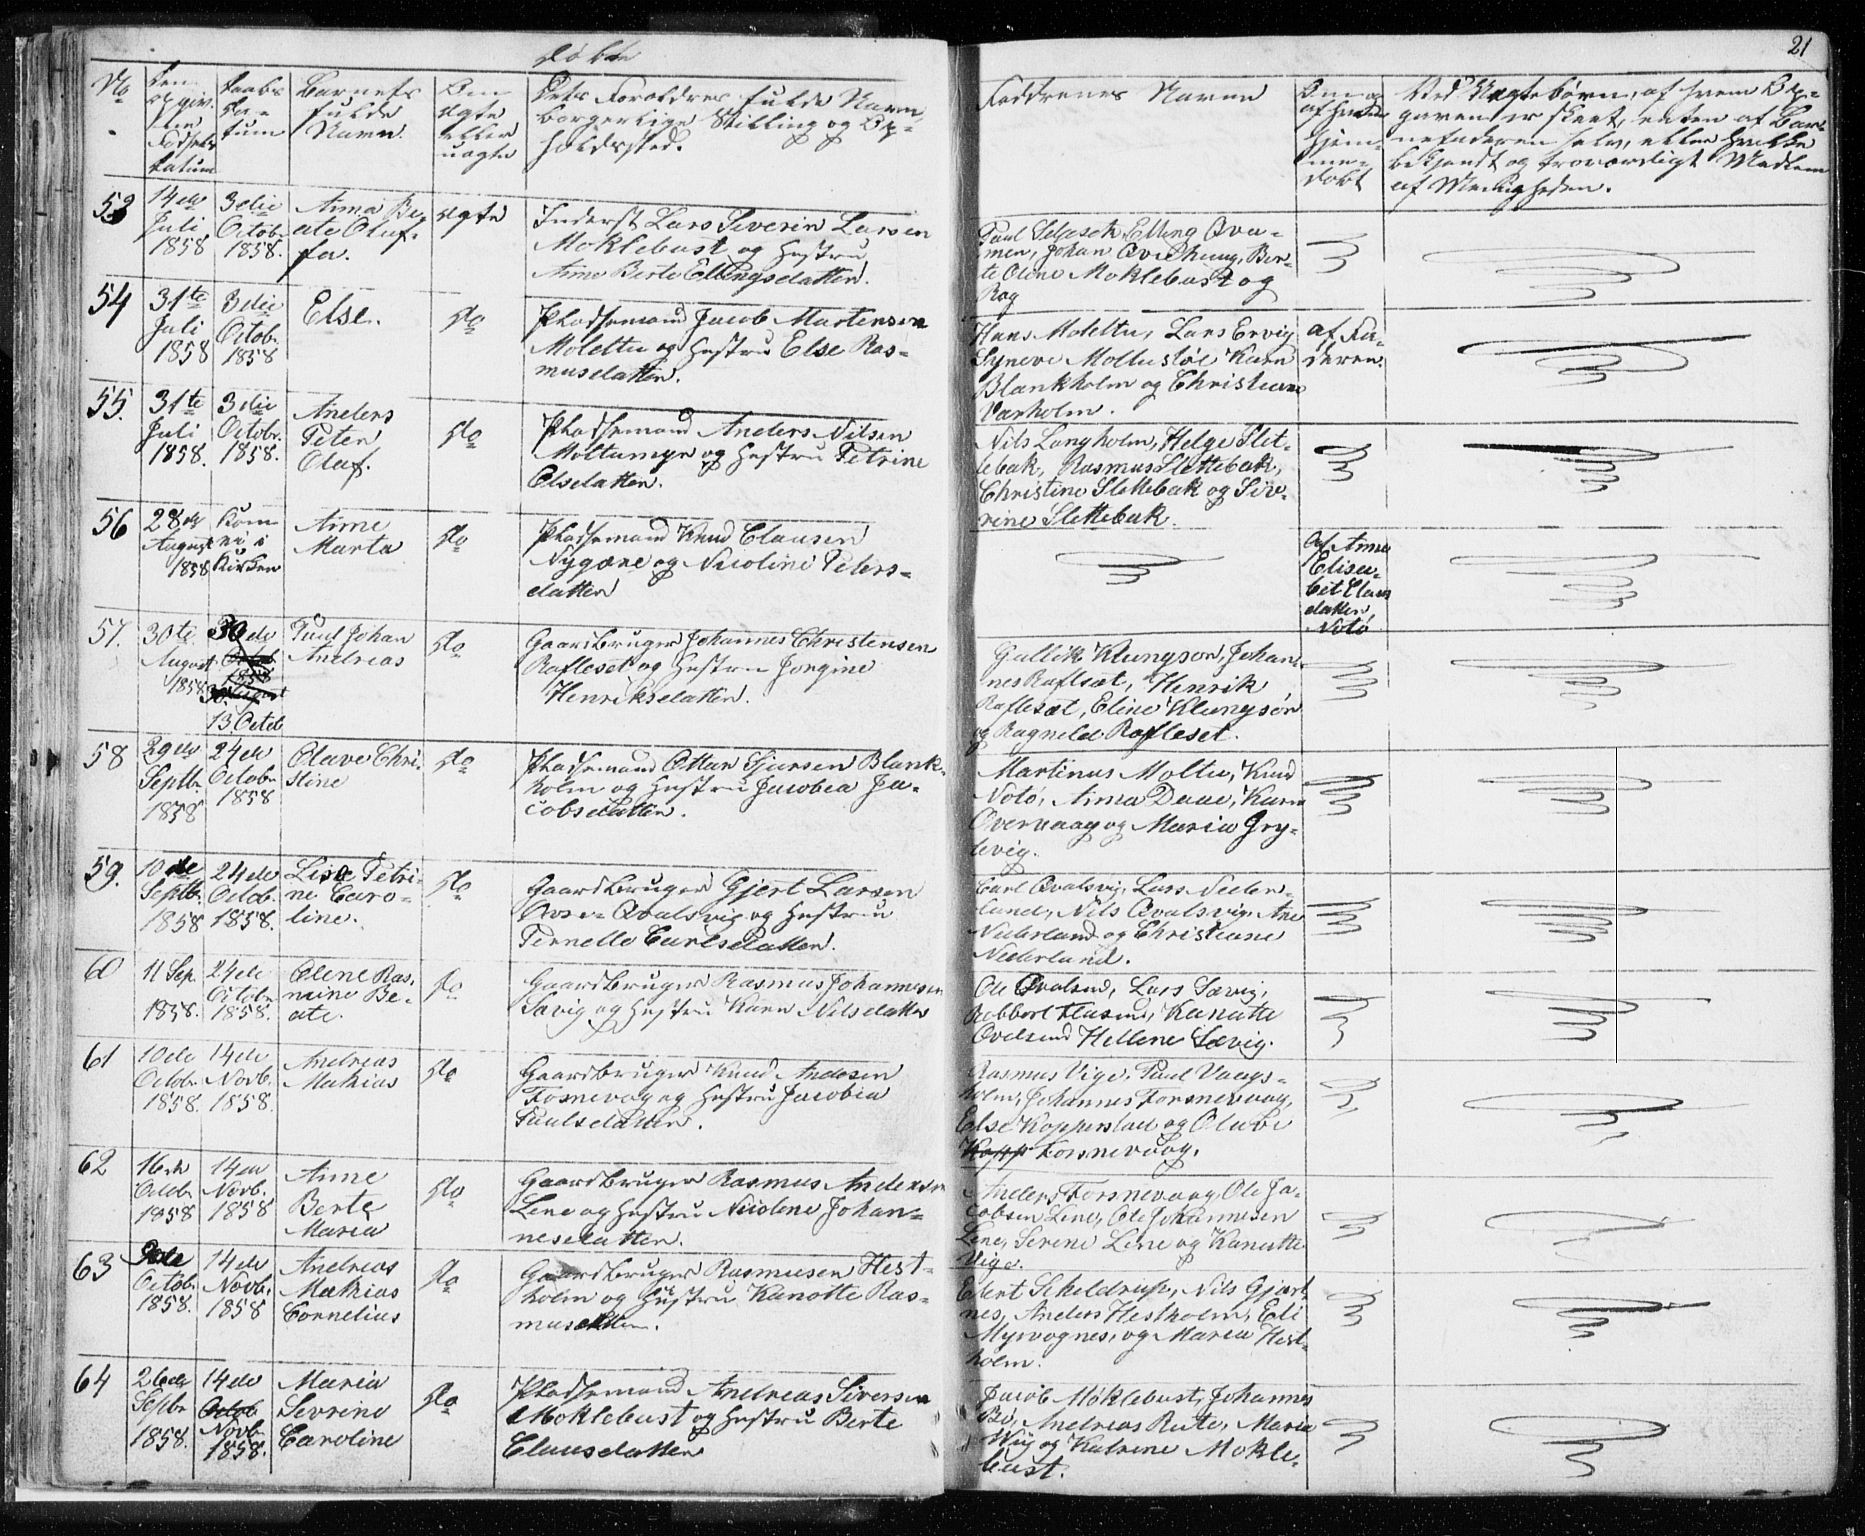 Døbte
21
No
Den
opgiv-
ne
Fødsels
datum
Daabs
da-
tum
Barnets
fulde
Navn.
Om
ægte
eller
uægte
Dets Foreldres fulde Navn,
borgerlige Stilling og Op-
holdssted.
Faddrenes Navne
Om og
af hvem
hjem-
me-
døbt
Ved Uægtebørn, af hvem Op-
gaven er skeet, enten af Bar-
nefaderen selv, eller hvilke
bekjendt og troværdigt Medlem
af Menigheden.
53
14de
Juli
1858
3die
Octobr
1858.
Anna Be-
ate Oluf-
fa.
ægte
Inderst Lars Severin Larsen
Moklebust og Hustru
Anne Berte Ellingsdatter.
Paul Elling Qva-
men, Johan Ber-
te Oline Moklebust og
54
31te
Juli
1858
3die
Octobr.
1858
Else.
do
Pladsemand Jacob Martensen
Molettu og Hustru Else Ras-
musdatter.
Hans Molettu, Lars Ervig
Syneve Moltustøl Karn
Blankholm og Christiane
Varholm.
af Fa-
deren.
55.
31te
Juli
1858.
3die
Octobr.
1858.
Anders
Peter
Oluf.
do
Pladsemand Anders Nilsen
Moltumyr og Hustru Petrine
Olsdatter.
Nils Langholm, Helge Slet-
tebak, Rasmus Slettebak,
Christine Slettebak og Sive-
rine Slettebak.
56
28de
August
1858
Kom
ei i
Kirken
Anne
Marta
do
Pladsemand Knud Clausen
Nygære og Nicoline Peters-
datter
Af Anne
Elisa-
bet Claus
datter
Notø
57.
30te
August
1858
30de
Octob
1858
30 August
13 Octob
Paul Johan
Andreas
do
Gaardbruger Johannes Christensen
Rafteset og Hustru Jorgine
Henriksdatter.
Gullik Klungsør, Johan-
nes Raftsæt, Henrik
Raftesæt, Eline Klungsør
og Ragnilde Rafteset.
58
29de
Septb.
1858
24de
Octobr
1858
Olave Chri-
stine
do
Pladsemand Ottar Sjursen Blank-
holm og Hustru Jacobea Ja-
cobsdatter.
Martinus Moltu, Knud
Notø, Anna Daae, Karn
Overvaag og Maria Gry-
tevig.
59.
10de
Septb.
1858
24de
Octob.
1858.
Lise Petri-
ne Caro-
line.
do
Gaardbruger Gjert Larsen
Øvre-Qvalsvig og Hustru
Pernelle Carlsdatter.
Carl Qvalsvig, Lars Neder-
land, Nils Qvalsvig, Ane
Nederland og Christiane
Nederland.
60
11 Sep.
1858.
24de
Octobr
1858.
Oline Ras-
mine Be-
ate.
do
Gaardbruger Rasmus Johannesen
Savig og Hustru Karn Nilsdatter
Ole Qvalsund, Lars Sævig,
Robbert Flusund, Kanutte
Qvalsund Hellene Sævig.
61
10de
Octobr
1858.
14de
Novb.
1858.
Andreas
Mathias
do
Gaardbruger Knud Andersen
Fosnevog og Hustru Jacobia
Paulsdatter.
Rasmus Vige, Paul Vaags-
holm, Johannes Forsnevaag,
Else Kopperstad og Olave
Kopp Forsnevaag.
62
16de
Octobr
1858
14de
Novb.
1858
Anne
Berte
Maria
do
Gaardbruger Rasmus Andersen
Lene og Hustru Nicoline Johan-
nesdatter.
Anders Forsnevaag, Ole Ja-
cobsen Line, Ole Johannesen
Line, Serine Line og Kanutte
Vige.
63
9de
Octobr
1858.
14de
Novb.
1858
Andreas
Mathias
Cornelius
do
Gaardbruger Rasmusen Hest-
holm og Hustru Kanotte Ras-
musdatter.
Ebert Scheldrup, Nils Gjert
nes, Anders Hestholm, Eli
Myrvognes, og Maria Hest-
holm.
64
26de
Sepbr
1858.
14de
Octob
Novb.
1858.
Maria
Sevrine
Caroline
do
Pladsemand Andreas Siversen
Moklebust og Hustru Berte
Clausdatter
Jacob Møklebust, Johannes
Bø, Andreas Rute, Maria
Wiig og Katrine Mokle-
bust.